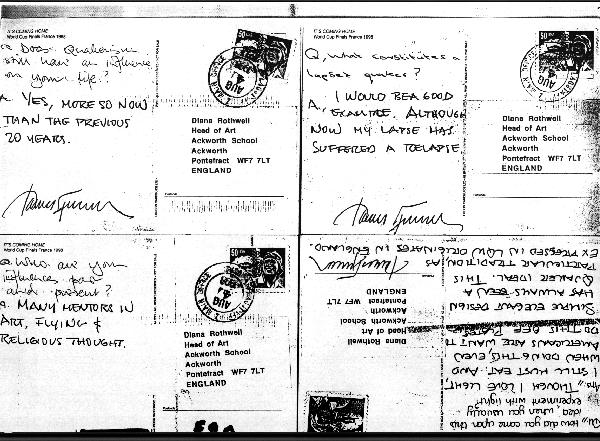 IT'S COMING HOME
World Cup Finals France 1998
Q. Does Quakerism
still have an influence
on your life?
A. YES, MORE SO NOW
THAN THE PREVIOUS
20 YEARS.
50
AUG
Diana Rothwell
Head of Art
Ackworth School
Ackworth
Pontefract WF7 7LT
ENGLAND
James Turrell
IT'S COMING HOME
World Cup Finals France 1998
Q. What constitutes a
lapsed quaker?
A. I WOULD BE A GOOD
EXAMPLE. ALTHOUGH
NOW MY LAPSE HAS
SUFFERED A RELAPSE.
50
AUG
Diana Rothwell
Head of Art
Ackworth School
Ackworth
Pontefract WF7 7LT
ENGLAND
James Turrell
IT'S COMING HOME
World Cup Finals France 1998
Q. Who are your
influences past
and present?
A. MANY MENTORS IN
ART, FLYING &
RELIGIOUS THOUGHT.
50
AUG
Diana Rothwell
Head of Art
Ackworth School
Ackworth
Pontefract WF7 7LT
ENGLAND
Q. How did you come upon this
idea, when you usually
experiment with light?
"THOUGH I LOVE LIGHT,
I STILL MUST EAT. AND
WHEN DOING THIS, EVEN
AMERICANS ARE WANT TO
DO THIS
SIMPLE ELEGANT DESIGN
HAS ALWAYS BEEN A
QUAKER IDEAL. THIS
PARTICULAR TRADITION, AS
EXPRESSED IN ORIGINATES IN ENGLAND.
James Turrell
Diana Rothwell
Head of Art
Ackworth School
Ackworth
Pontefract WF7 7LT
ENGLAND